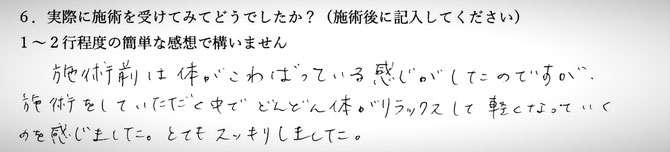 6．実際に施術を受けてみてどうでしたか？（施術後に記入してください）
1～2行程度の簡単な感想で構いません
施術前は体がこわばっている感じがしたのですが、
施術をしていただく中でどんどん体がリラックスして軽くなっていく
のを感じました。とてもスッキリしました。